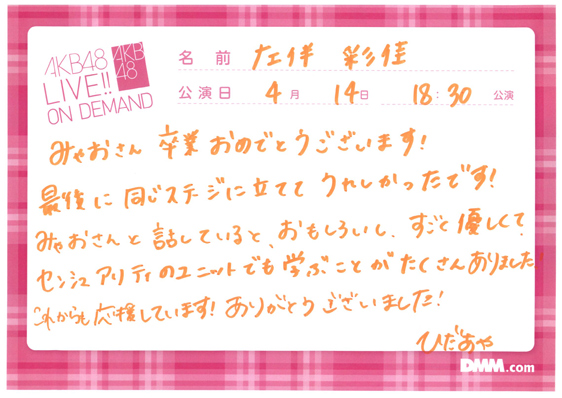 AKB48
LIVE!!
ON DEMAND
AKB
48
名前 左伴 彩佳
公演日 4月 14日 18:30 公演
みゃおさん 卒業おめでとうございます!
最後に同じステージに立ててうれしかったです!
みゃおさんと話していると、おもしろいし、すごく優しくて、
センシュアリティのユニットでも学ぶことがたくさんありました。
これからも応援しています!ありがとうございました!
ひだあや
DMM.com